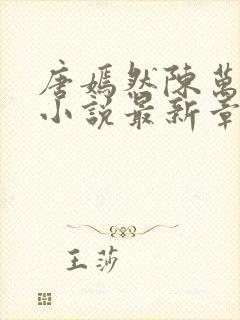 唐嫣然陳萬
小說最新章
王莎